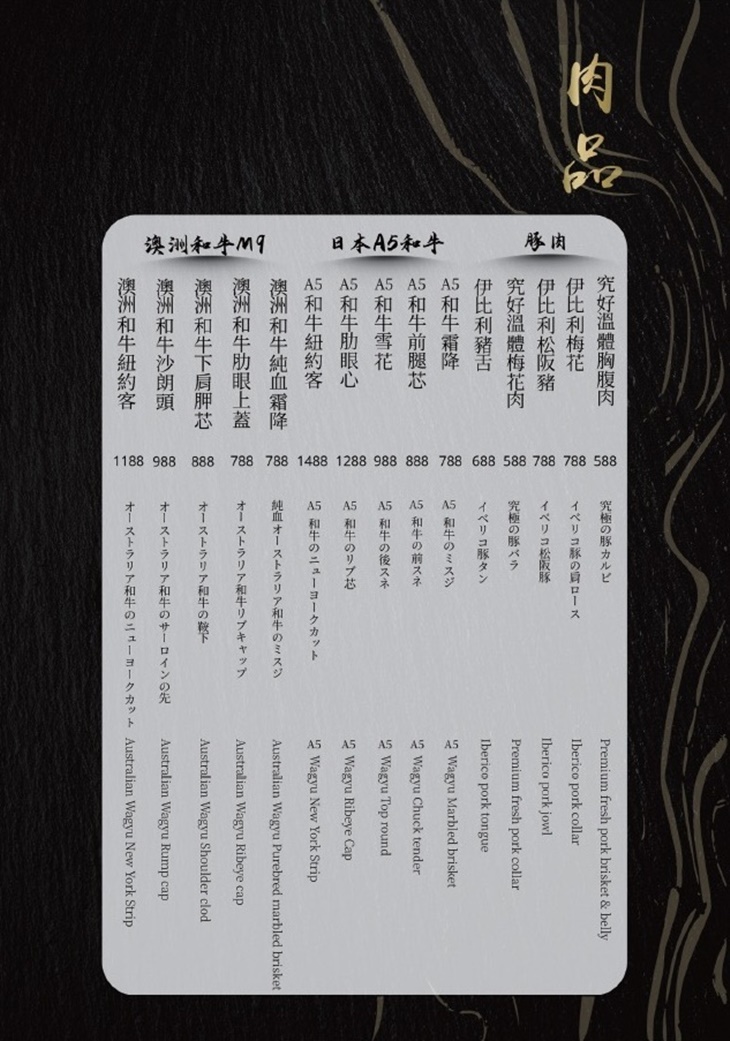 肉品
豚肉
究好溫體胸腹肉
588
究極の豚カルビ
Premium fresh pork brisket & belly
伊比利梅花
788
イベリコ豚の肩ロース
Iberico pork collar
伊比利松阪豬
788
イベリコ松阪豚
Iberico pork jowl
究好溫體梅花肉
588
究極の豚バラ
Premium fresh pork collar
伊比利豬舌
688
イベリコ豚タン
Iberico pork tongue
日本A5和牛
A5和牛霜降
788
A5 和牛のミスジ
A5 Wagyu Marbled brisket
A5和牛前腿芯
888
A5 和牛の前スネ
A5 Wagyu Chuck tender
A5和牛雪花
988
A5 和牛の後スネ
A5 Wagyu Top round
A5和牛肋眼心
1288
A5 和牛のリブ芯
A5 Wagyu Ribeye Cap
A5和牛紐約客
1488
A5 和牛のニューヨークカット
A5 Wagyu New York Strip
澳洲和牛M9
澳洲和牛純血霜降
788
純血オーストラリア和牛のミスジ
Australian Wagyu Purebred marbled brisket
澳洲和牛肋眼上蓋
788
オーストラリア和牛リブキャップ
Australian Wagyu Ribeye cap
澳洲和牛下肩胛芯
888
オーストラリア和牛の靴下
Australian Wagyu Shoulder clod
澳洲和牛沙朗頭
988
オーストラリア和牛のサーロインの先
Australian Wagyu Rump cap
澳洲和牛紐約客
1188
オーストラリア和牛のニューヨークカット
Australian Wagyu New York Strip